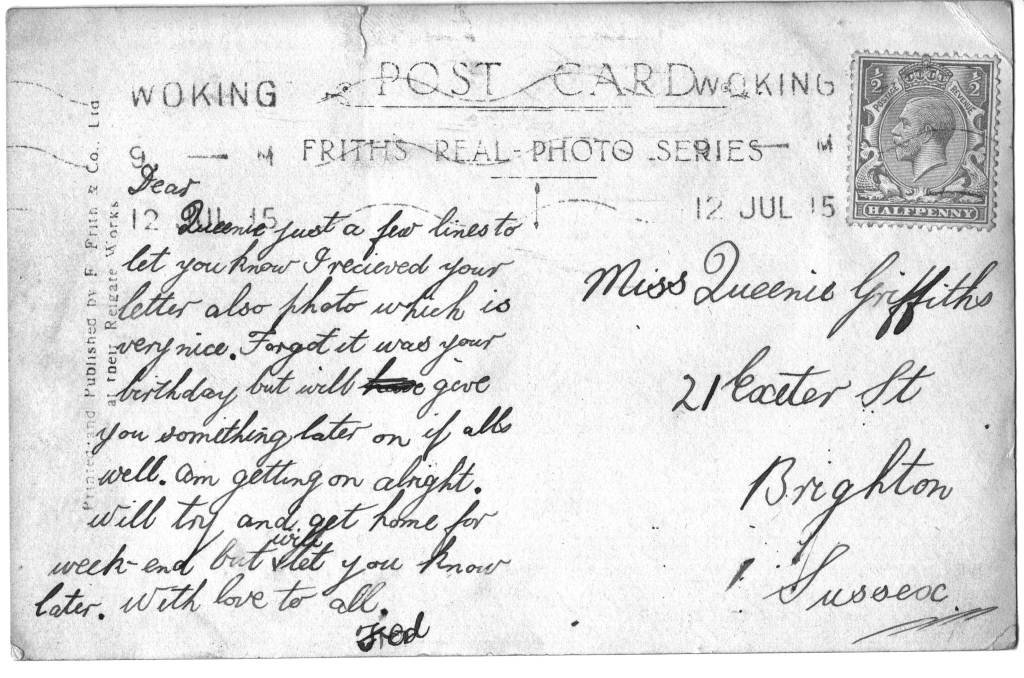 POST CARD
WOKING
WOKING
9 — M
— M
FRITHS REAL-PHOTO SERIES
12 JUL 15
12 JUL 15
1/2 1/2
POSTAGE REVENUE
HALFPENNY
Printed and Published by F. Frith & Co., Ltd
at their Reigate Works
Dear
Queenie just a few lines to
let you know I recieved your
letter also photo which is
very nice. Forgot it was your
birthday but will have give
you something later on if alls
well. am getting on alright.
will try and get home for
week-end but will let you know
later. With love to all.
Fred
Miss Queenie Griffiths
21 Exeter St
Brighton
Sussex